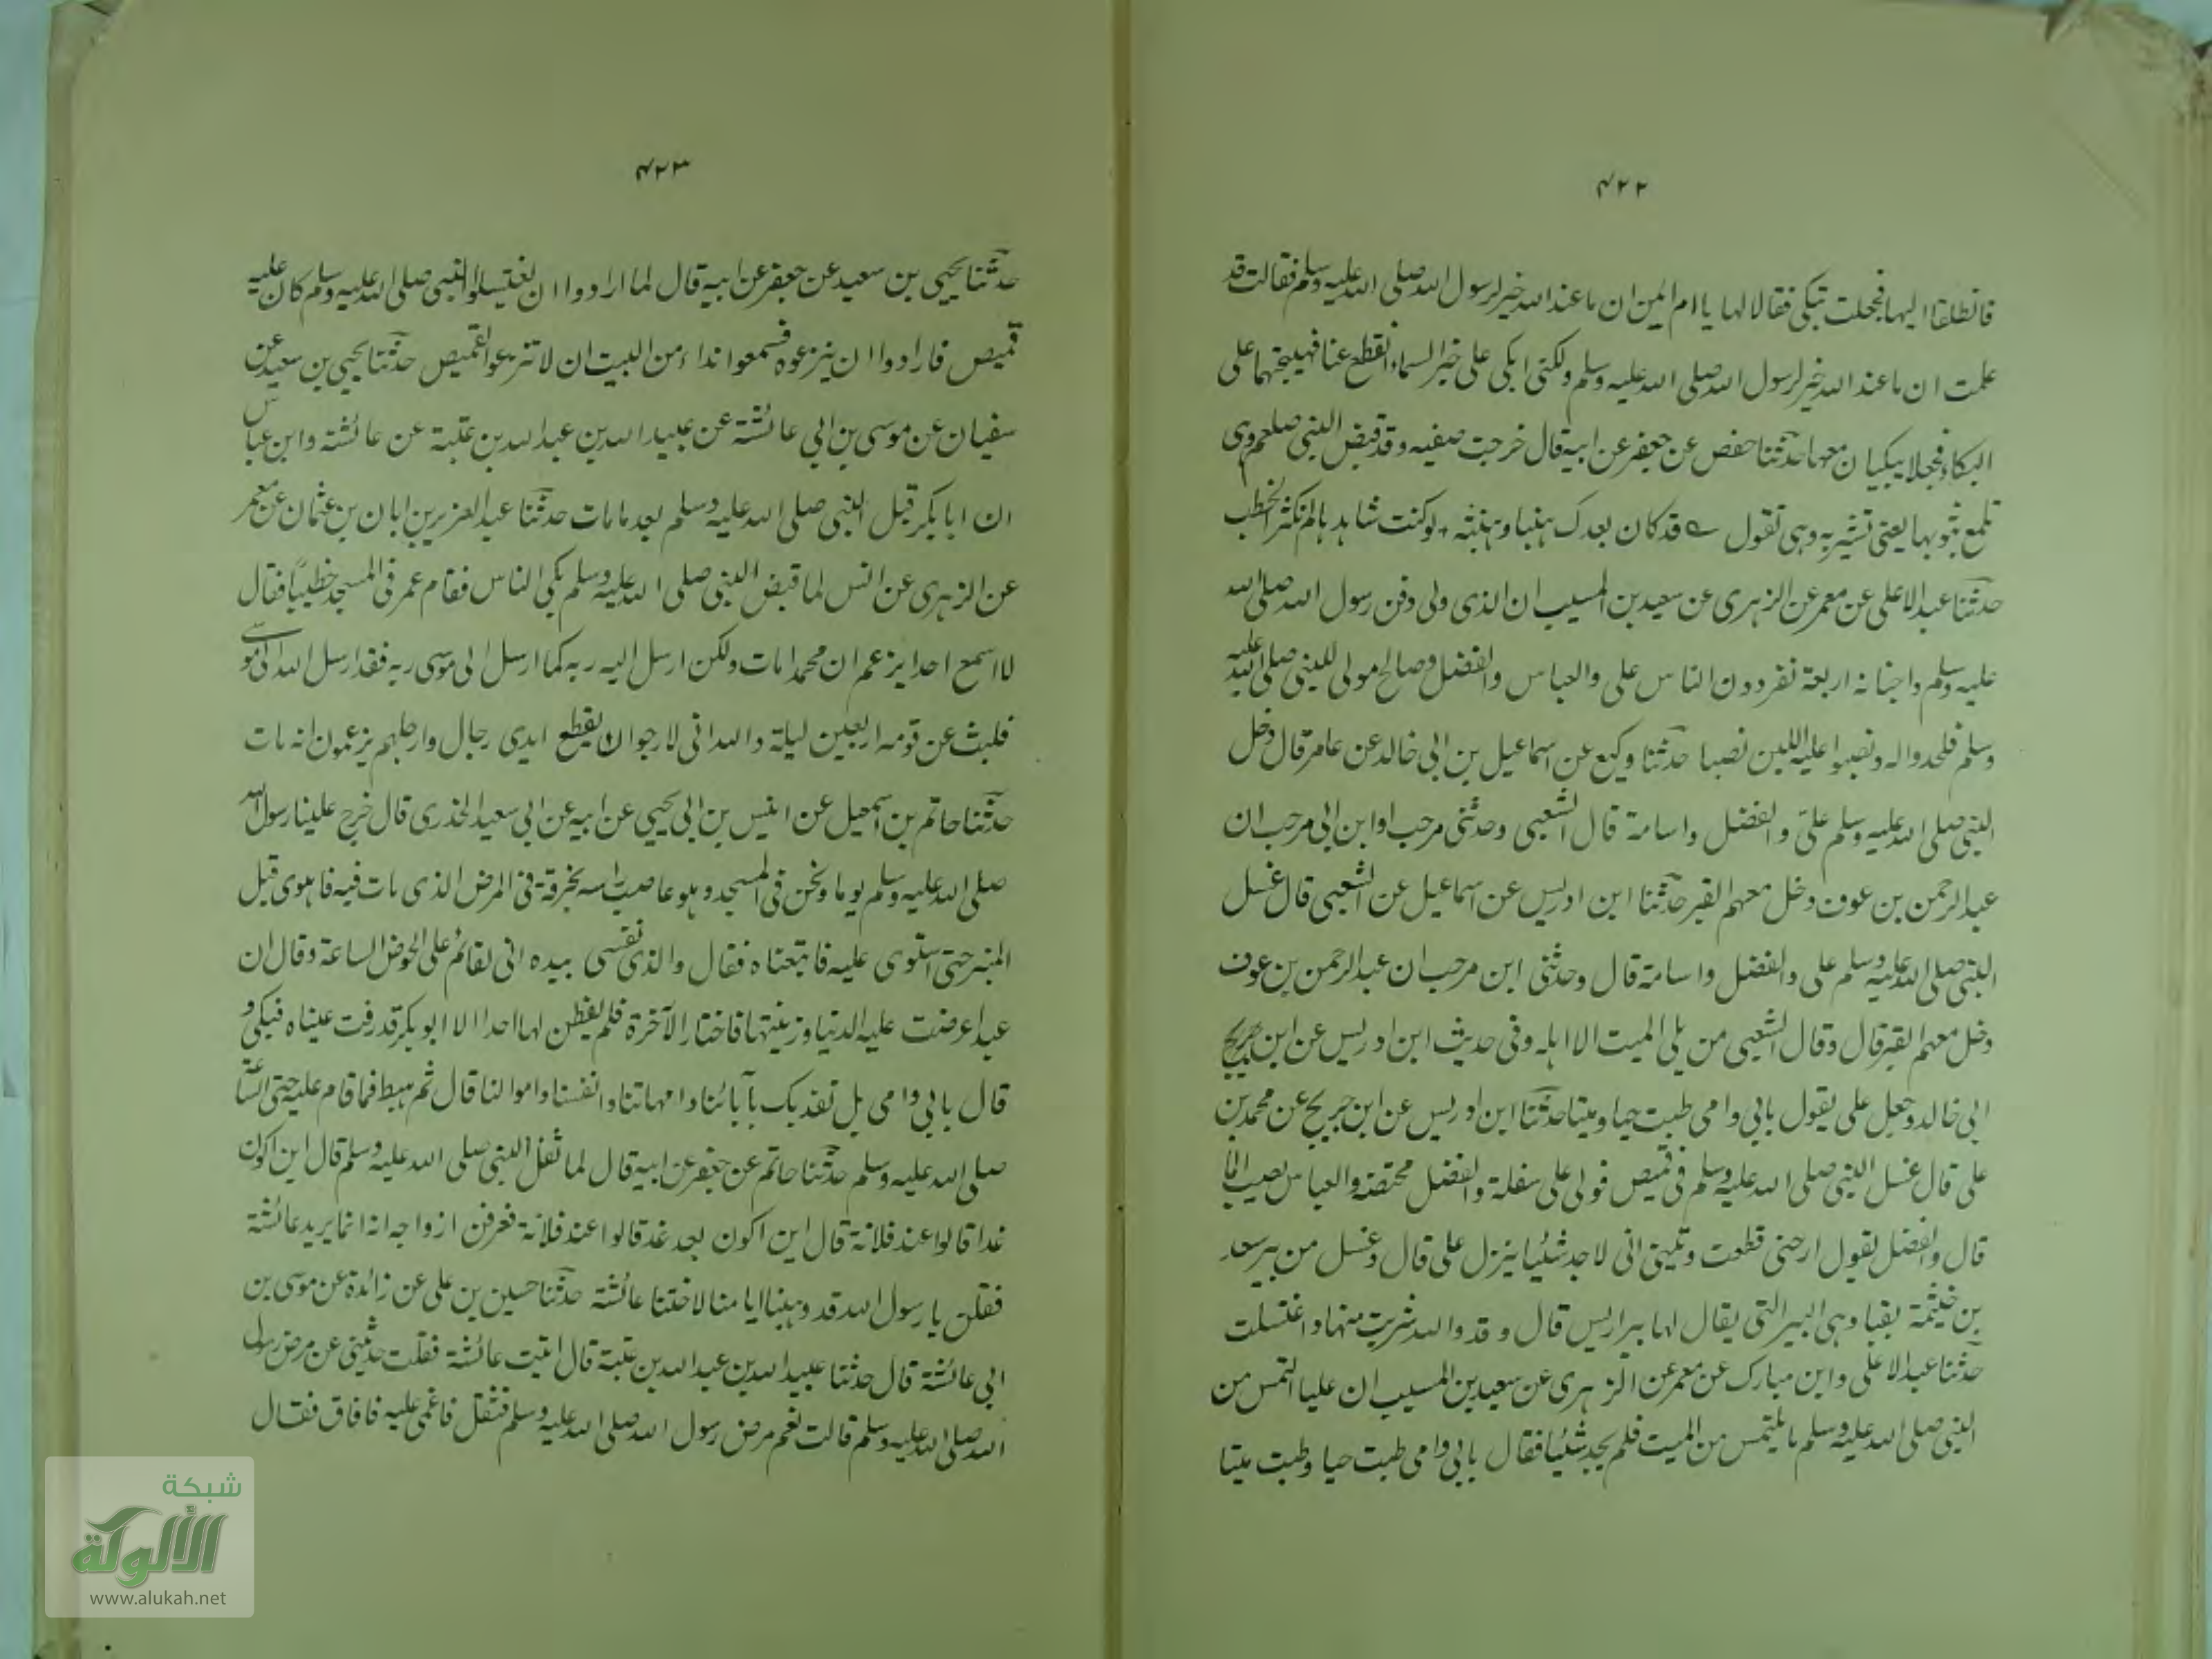 ۴۲۲
فانطلقا اليها فجعلت تبكى فقالا لها يا ام ايمن ان ما عند الله خير لرسول الله صلى الله عليه وسلم فقالت قد
علمت ان ما عند الله خير لرسول الله صلى الله عليه وسلم ولكنى ابكى على خبر السماء انقطع عنا فهيجتهما على
البكاء فجعلا يبكيان معها حدثنا حفص عن جعفر عن ابيه قال خرجت صفيه وقد قبض النبى صلعم وهى
تلمع بثوبها يعنى تشير به وهى تقول قد كان بعدك هنبا وهنبثه لو كنت شاهدها لم تكثر الخطب
حدثنا عبد الاعلى عن معمر عن الزهرى عن سعيد بن المسيب ان الذى ولى دفن رسول الله صلى الله
عليه وسلم واجنانه اربعة نفر دون الناس على والعباس والفضل وصالح مولى للنبى صلى الله عليه
وسلم فلحدوا له ونصبوا عليه اللبن نصبا حدثنا وكيع عن اسماعيل بن ابى خالد عن عامر قال دخل
النبى صلى الله عليه وسلم علىّ والفضل واسامة قال الشعبى وحدثنى مرحب او ابن ابى مرحب ان
عبد الرحمن بن عوف دخل معهم القبر حدثنا ابن ادريس عن اسماعيل عن الشعبى قال غسل
النبى صلى الله عليه وسلم على والفضل واسامة قال وحدثنى ابن مرحب ان عبد الرحمن بن عوف
دخل معهم القبر قال وقال الشعبى من يلى الميت الا اهله وفى حديث ابن ادريس عن ابن جريج
ابى خالد وجعل على يقول بابى وامى طبت حيا وميتا حدثنا ابن ادريس عن ابن جريج عن محمد بن
على قال غسل النبى صلى الله عليه وسلم فى قميص فولى على سفلة والفضل محتضنه والعباس يصيب الماء
قال والفضل يقول ارحنى قطعت وتينى انى لاجد شيئا ينزل على قال وغسل من بير سعد
بن خيثمة بقبا وهى البير التى يقال لها بير اريس قال وقد والله شربت منها واغتسلت
حدثنا عبد الاعلى وابن مبارك عن معمر عن الزهرى عن سعيد بن المسيب ان عليا التمس من
النبى صلى الله عليه وسلم ما يلتمس من الميت فلم يجد شيئا فقال بابى وامى طبت حيا وطبت ميتا
۴۲۳
حدثنا يحيى بن سعيد عن جعفر عن ابيه قال لما ارادوا ان يغتسلوا النبى صلى الله عليه وسلم كان عليه
قميص فارادوا ان ينزعوه فسمعوا نداء من البيت ان لا تنزعوا القميص حدثنا يحيى بن سعيد عن
سفيان عن موسى بن ابى عائشة عن عبيد الله بن عبد الله بن عتبة عن عائشة وابن عباس
ان ابا بكر قبل النبى صلى الله عليه وسلم بعد ما مات حدثنا عبد العزيز بن ابان بن عثمان عن معمر
عن الزهرى عن انس لما قبض النبى صلى الله عليه وسلم بكى الناس فقام عمر فى المسجد خطيبًا فقال
لا اسمع احدا يزعم ان محمدا مات ولكن ارسل اليه ربه كما ارسل الى موسى ربه فقد ارسل الله الى موسى
فلبث عن قومه اربعين ليلة والله انى لارجوا ان يقطع ايدى رجال وارجلهم يزعمون انه مات
حدثنا حاتم بن اسمعيل عن انيس بن ابى يحيى عن ابيه عن ابى سعيد الخدرى قال خرج علينا رسول الله
صلى الله عليه وسلم يوما ونحن فى المسجد وهو عاصب راسه بخرقة فى المرض الذى مات فيه فاهوى قبل
المنبر حتى استوى عليه فاتبعناه فقال والذى نفسى بيده انى لقائم على الحوض الساعة وقال ان
عبدا عرضت عليه الدنيا وزينتها فاختار الآخرة فلم يفطن لها احدا الا ابو بكر قدرفت عيناه فبكى و
قال بابى وامى بل نفديك بآبائنا وامهاتنا وانفسنا واموالنا قال ثم هبط فما قام عليه حتى الساعة
صلى الله عليه وسلم حدثنا حاتم عن جعفر عن ابيه قال لما ثقل النبى صلى الله عليه وسلم قال اين اكون
غدا قالوا عند فلانة قال اين اكون بعد غد قالوا عند فلانة فعرفن ازواجه انه انما يريد عائشة
فقلن يا رسول الله قد وهبنا ايامنا لاختنا عائشة حدثنا حسين بن على عن زائدة عن موسى بن
ابى عائشة قال حدثنا عبيد الله بن عبد الله بن عتبة قال اتيت عائشة فقلت حدثينى عن مرض رسول
الله صلى الله عليه وسلم قالت نعم مرض رسول الله صلى الله عليه وسلم فثقل فاغمى عليه فافاق فقال
شبكة
الألوكة
www.alukah.net